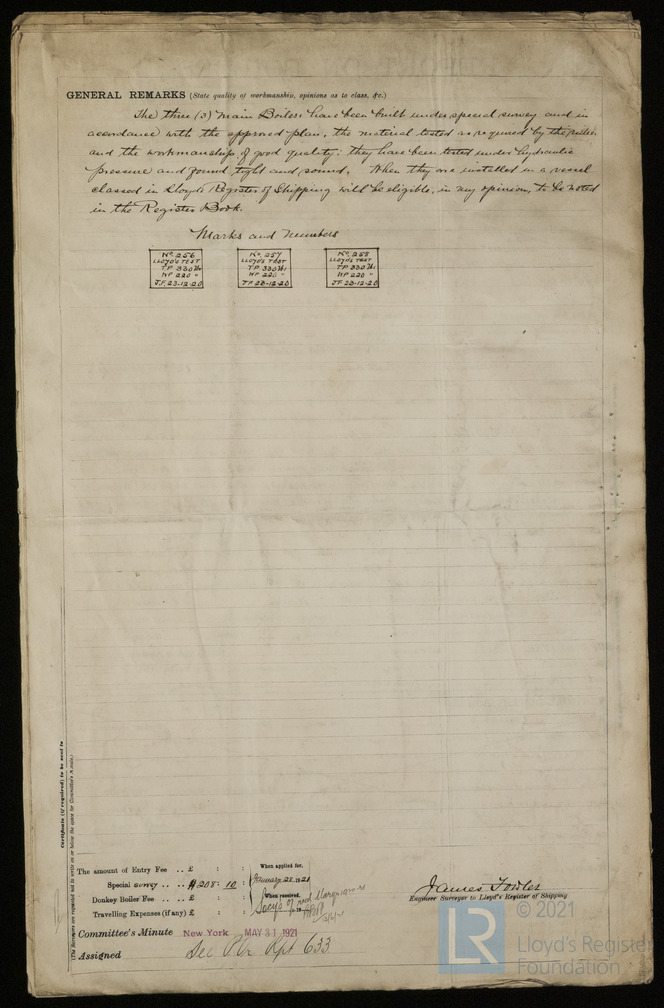 GENERAL REMARKS (State quality of workmanship, opinions as to class, &c.)
The three (3) Main Boilers have been built under special survey and in
accordance with the approved plan, the material tested as required by the rules
and the workmanship of good quality: they have been tested under hydraulic
pressure and found tight and sound. When they are installed in a vessel
classed in Lloyds Register of Shipping will be eligible, in my opinion, to be noted
in the Register Book.
Marks and Numbers
No. 256
LLOYD'S TEST
T.P. 330 lbs
WP 220 "
J.F. 23-12-20
No. 257
LLOYD'S TEST
TP 330 lbs
WP 220 "
JF 23-12-20
No. 258
LLOYD'S TEST
TP 330 lbs
WP 220 "
JF 23-12-20
Certificate (if required) to be sent to
(The Surveyors are requested not to write on or below the space for Committee's Minute.)
The amount of Entry Fee .. £ : :
Special survey .. .. $ 208 : 10 :
Donkey Boiler Fee .. .. £ : :
Travelling Expenses (if any) £ : :
When applied for,
January 28 1921
When received,
19
James Fowler
Engineer Surveyor to Lloyd's Register of Shipping
Committee's Minute New York MAY 31 1921
Assigned See Rpt 633
© 2021
LR
Lloyd's Register
Foundation